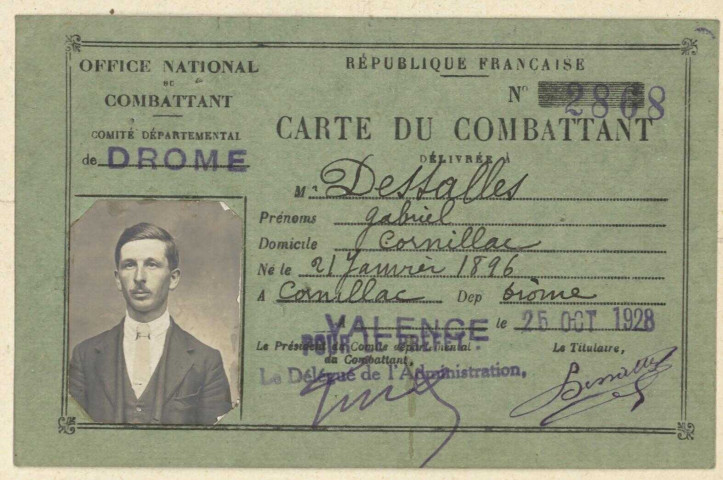 OFFICE NATIONAL
DU
COMBATTANT
COMITÉ DÉPARTEMENTAL
de DROME
RÉPUBLIQUE FRANÇAISE
N° 2868
CARTE DU COMBATTANT
DÉLIVRÉE A
M r Dessalles
Prénoms gabriel
Domicile Cornillac
Né le 21 Janvier 1896
A Cornillac Dep Drôme
A VALENCE le 25 OCT 1928
Le Président du Comité départemental
POUR
du Combattant,
Le Titulaire,
Le Délégué de l'Administration,
Dessalles